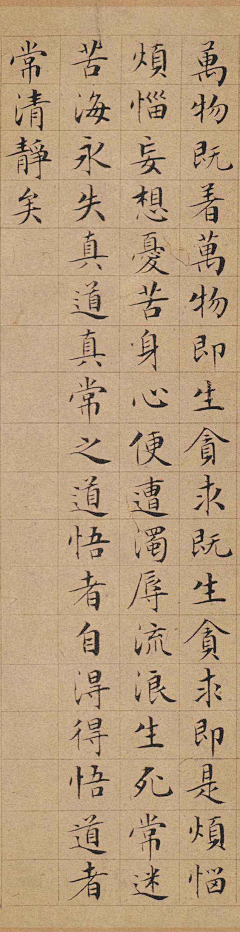 萬物既着萬物即生貪求既生貪求即是煩惱
煩惱妄想憂苦身心便遭濁辱流浪生死常迷
苦海永失真道真常之道悟者自淂得悟道者
常清靜矣